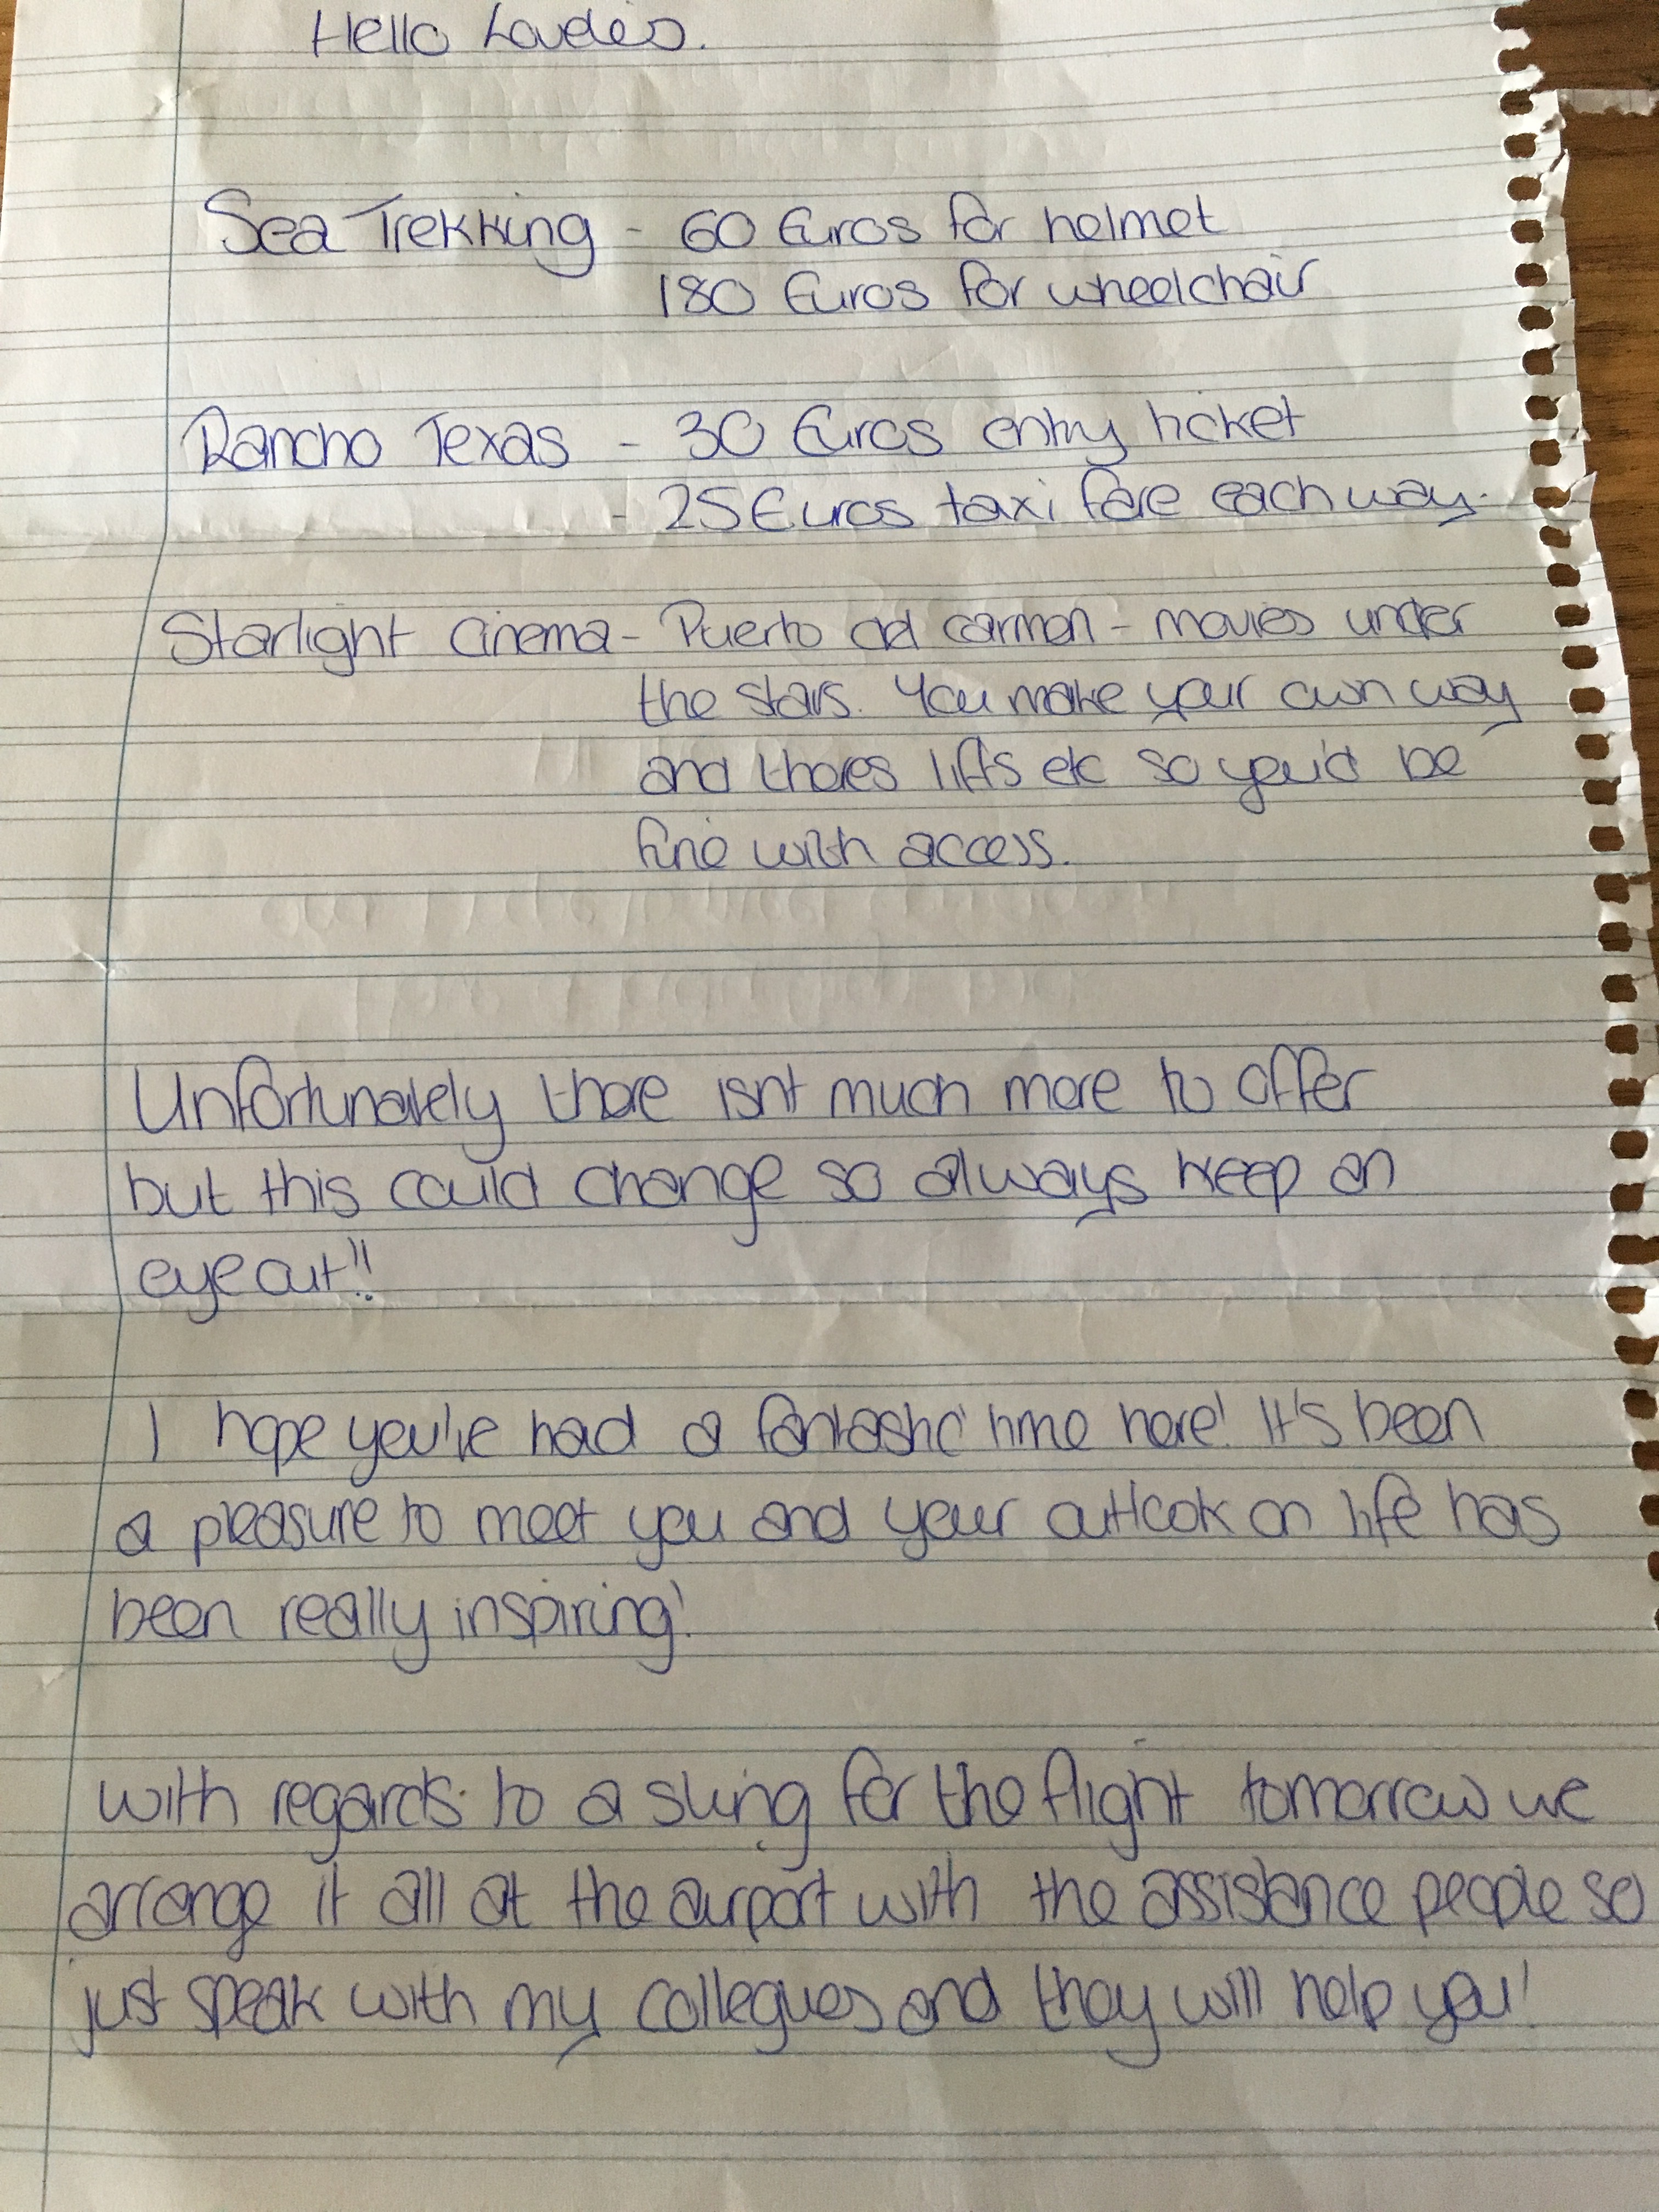 Hello Loudes.
Sea Trekking - 60 Euros for helmet
180 Euros for wheelchair
Rancho Texas - 30 Euros entry ticket
- 25 Euros taxi fare each way.
Starlight Cinema - Puerto del carmen - movies under
the stars. You make your own way
and theres lifts etc so you'd be
fine with access.
Unfortunately there isnt much more to offer
but this could change so always keep an
eye out!!
I hope you've had a fantastic time here! It's been
a pleasure to meet you and your outlook on life has
been really inspiring!
with regards to a sling for the flight tomorrow we
arrange it all at the airport with the assistance people so
just speak with my collegues and they will help you!